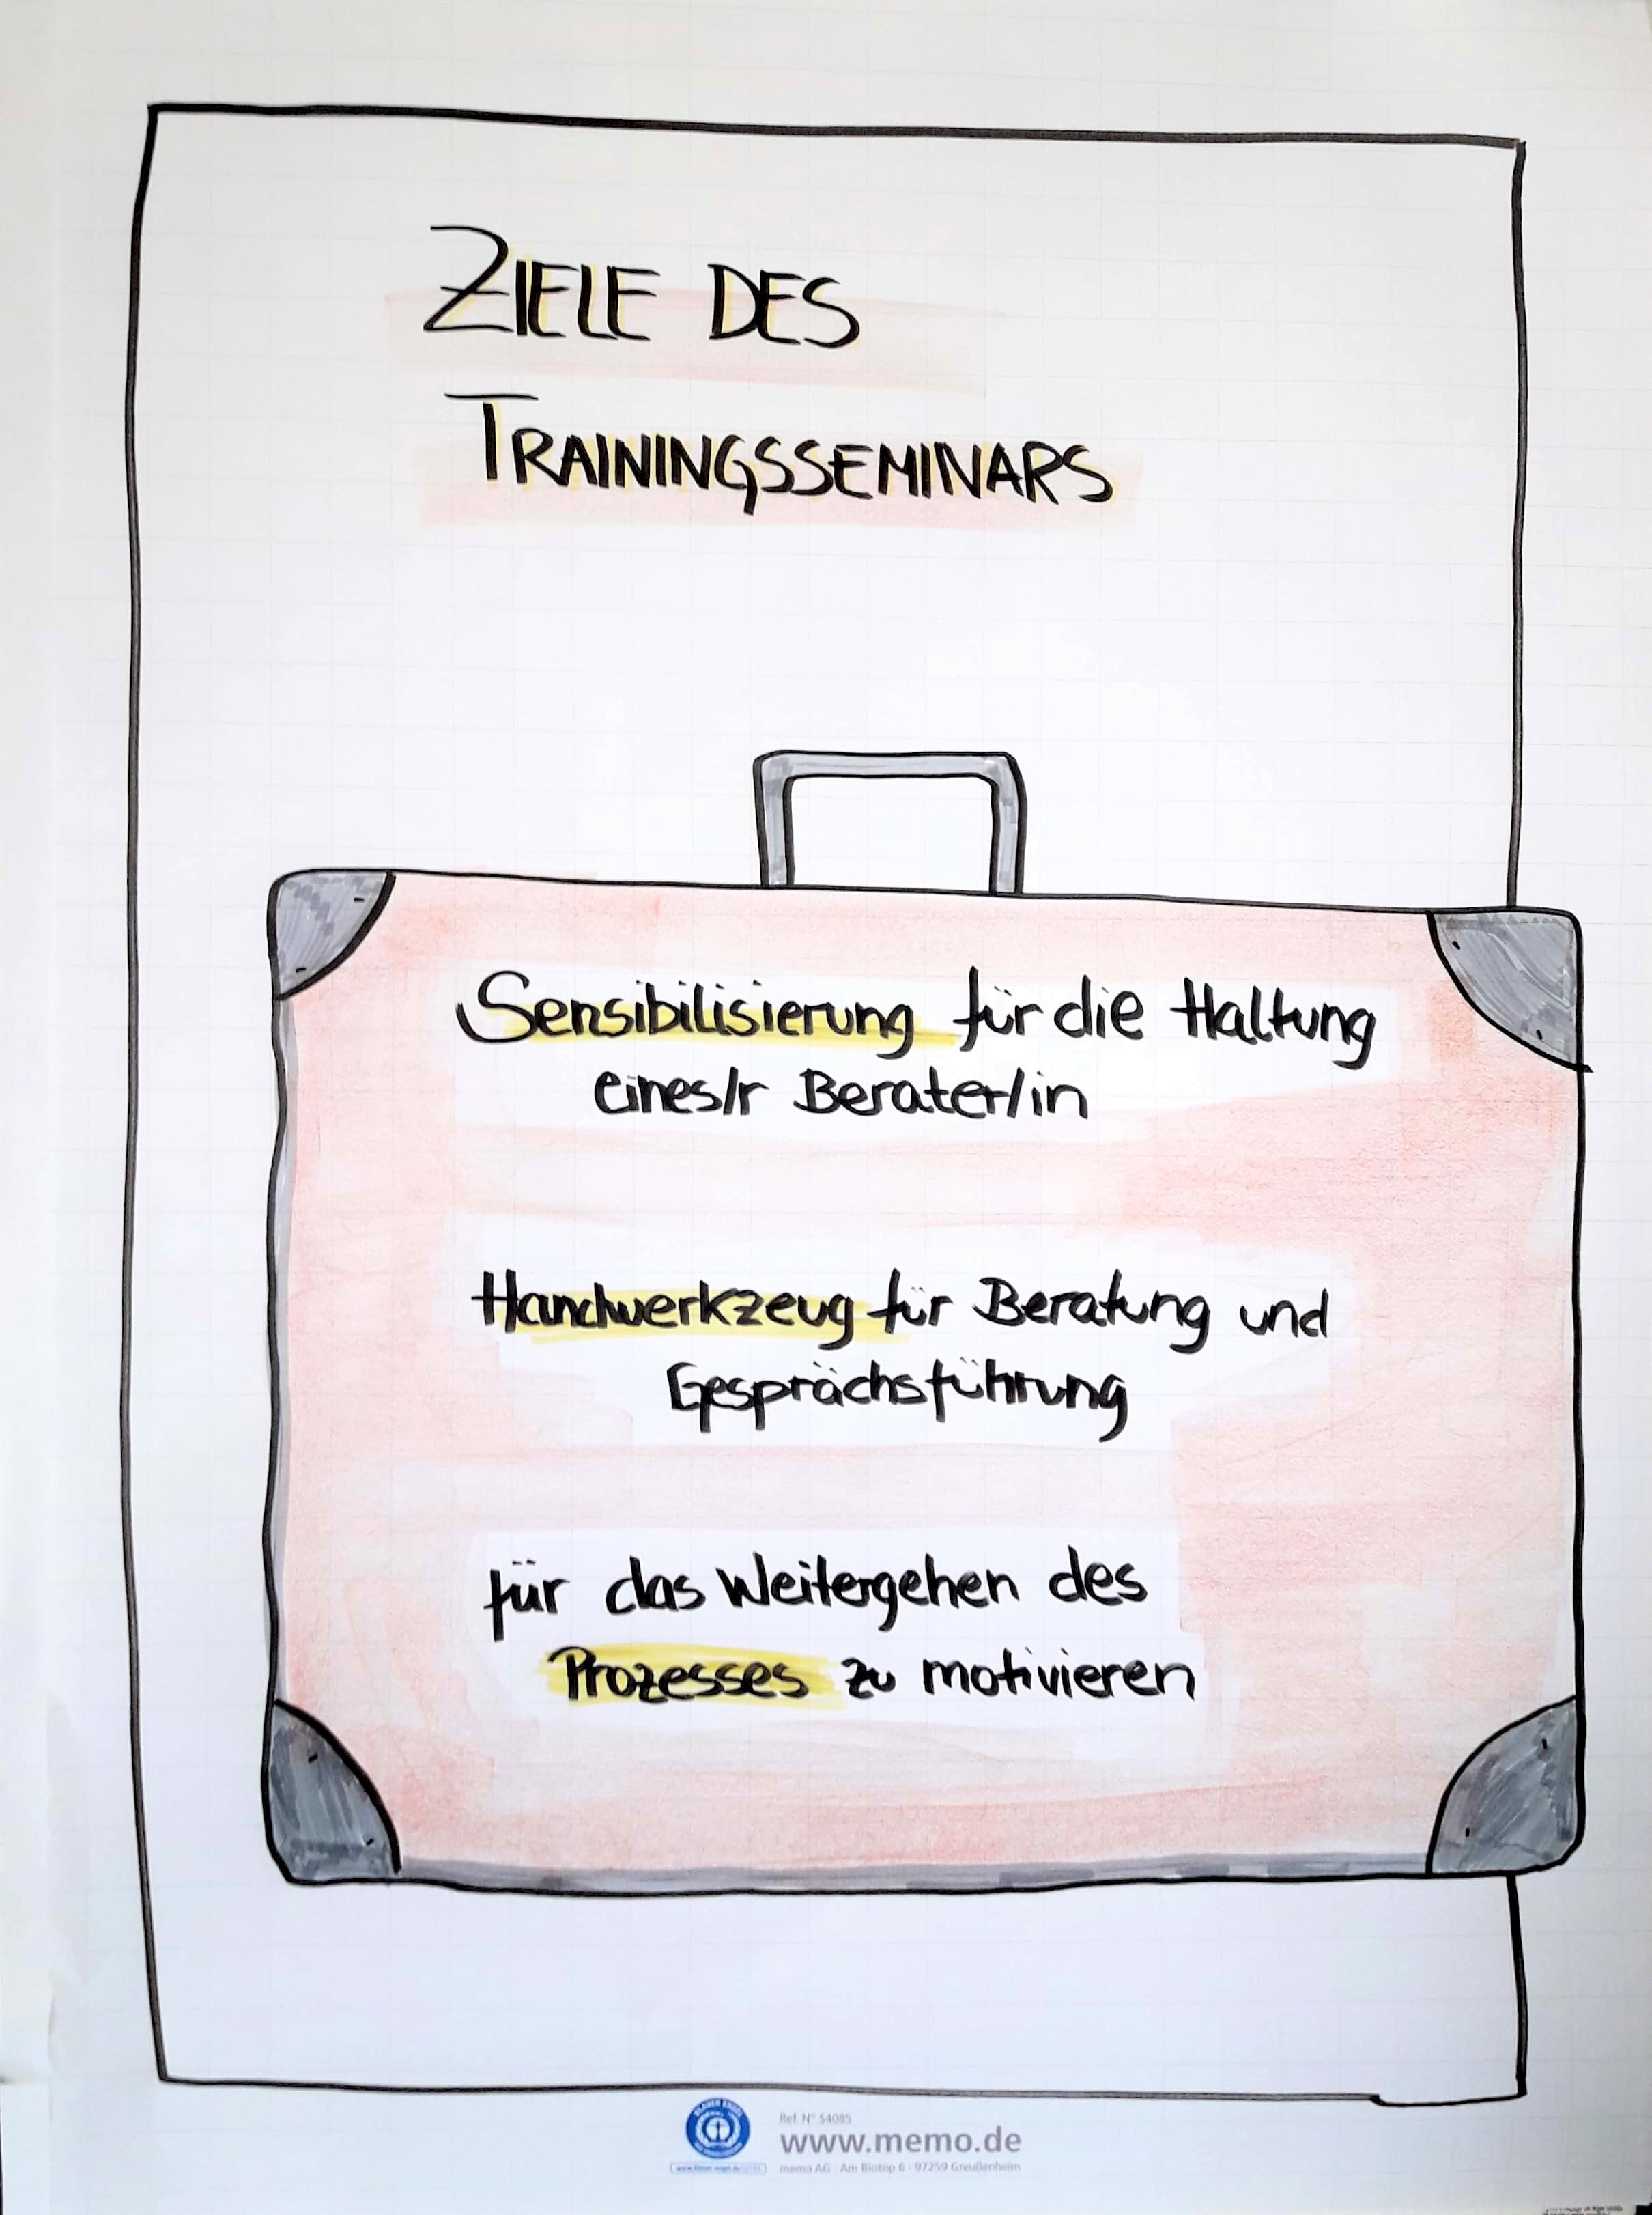 ZIELE DES
TRAININGSSEMINARS
Sensibilisierung für die Haltung
eines/r Berater/in
Handwerkzeug für Beratung und
Gesprächsführung
für das Weitergehen des
Prozesses zu motivieren
BLAUER ENGEL
Ref. N° 54085
www.memo.de
memo AG · Am Biotop 6 · 97259 Greußenheim